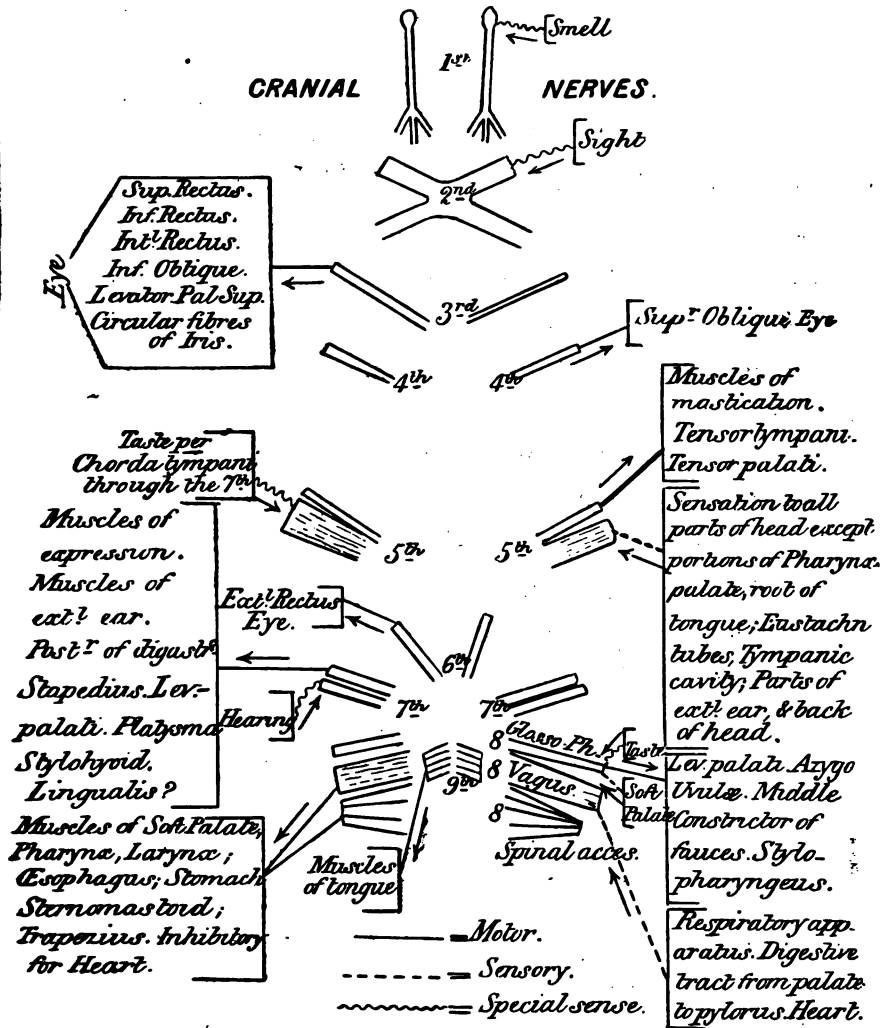 Smell
1st
CRANIAL NERVES.
Sight
2nd
Sup. Rectus.
Inf. Rectus.
Intl. Rectus.
Inf. Oblique.
Levator Pal Sup.
Circular fibres
of Iris.
Eye
3rd
Supr Oblique Eye
4th
4th
Muscles of
mastication.
Tensor tympani.
Tensor palati.
Taste per
Chorda tympani
through the 7th
5th
5th
Sensation to all
parts of head except
portions of Pharynx
palate, root of
tongue; Eustachn
tubes, Tympanic
cavity; Parts of
extl. ear, & back
of head.
Muscles of
expression.
Muscles of
extl. ear.
Postr of digastc
Stapedius. Lev.-
palati. Platysma
Stylohyoid.
Lingualis?
Extl. Rectus
Eye.
6th
Hearing
7th
7th
8 Glosso Ph.
Taste
8 Vagus.
Soft
Palate
8
Spinal acces.
9th
Lev. palati. Azygo
Uvulæ. Middle
Constrictor of
fauces. Stylo-
pharyngeus.
Muscles of Soft Palate,
Pharynx, Larynx;
Œsophagus; Stomach
Sternomastoid;
Trapezius. Inhibitory
for Heart.
Muscles
of tongue
Respiratory app-
aratus. Digestive
tract from palate
to pylorus. Heart.
= Motor.
= Sensory.
= Special sense.